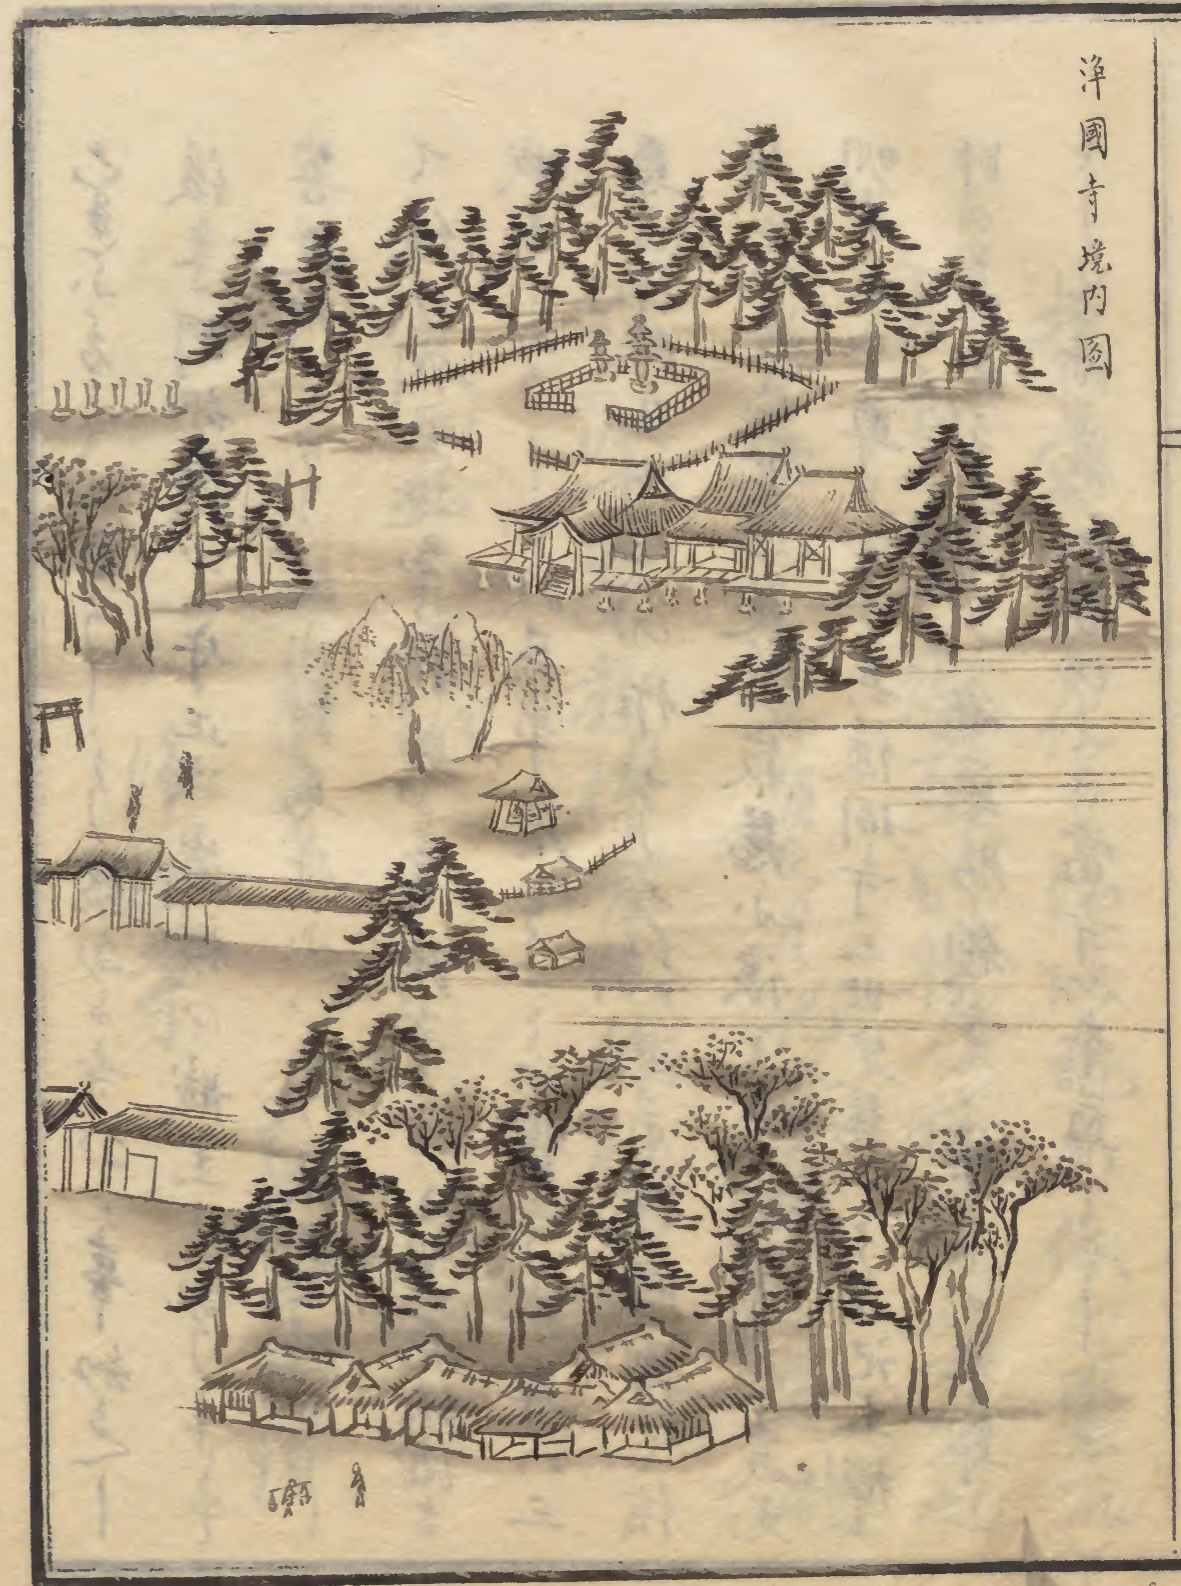 淨國寺境内圖